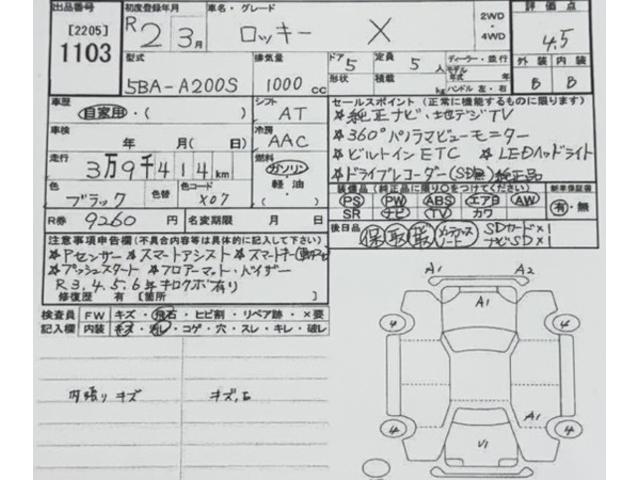 出品番号 初度登録年月 車名・グレード 2WD・4WD 評価点
[2205] 1103 R2 3月 ロッキー X 4.5
型式 排気量 ドア 定員 ディーラー・並行 外装 内装
5BA-A200S 1000cc 5 5人 モデル 年式 年 B B
形状 積載 kg ハンドル 左・右
車歴 シフト セールスポイント (正常に機能するものに限ります)
自家用・( ) AT ☆純正ナビ・地デジTV
車検 年 月(日) 冷房 AAC ☆360°パノラマビューモニター
走行 3万9千414km 燃料 ガソリン・軽油・( ) ☆ビルトインETC ☆LEDヘッドライト
☆ドライブレコーダー(SD無)純正品
色 ブラック 色替 色コード X07
装備品(純正品に限り○をつけてください) 新車保証書
PS PW ABS エアB AW 有・無
SR ナビ TV カワ
R券 9260円 名変期限 月 日
後日品 保 取 記 メンテナンスノート SDカード×1
ナビSD×1
注意事項申告欄(不具合内容等は具体的に記入して下さい)
☆Pセンサー ☆スマートアシスト ☆スマートキー
☆プッシュスタート ☆フロアーマット・バイザー
R3.4.5.6年キロクボ有り
修復歴 有 [箇所
検査員 FW キズ・飛石・ヒビ割・リペア跡・×要
記入欄 内装 キズ・汚レ・コゲ・穴・スレ・キレ・破レ
内張りキズ キズ,
A1 A2
A1
4 4
A1
4 4
V1